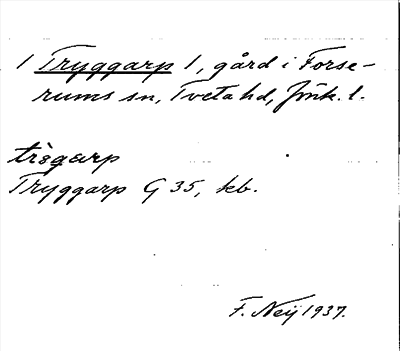 1 Tryggarp 1, gård i Forse-
rums sn, Tveta hd, Jönk. l.
trìgarp
Tryggarp G 35, kb.
F. Neij 1937.